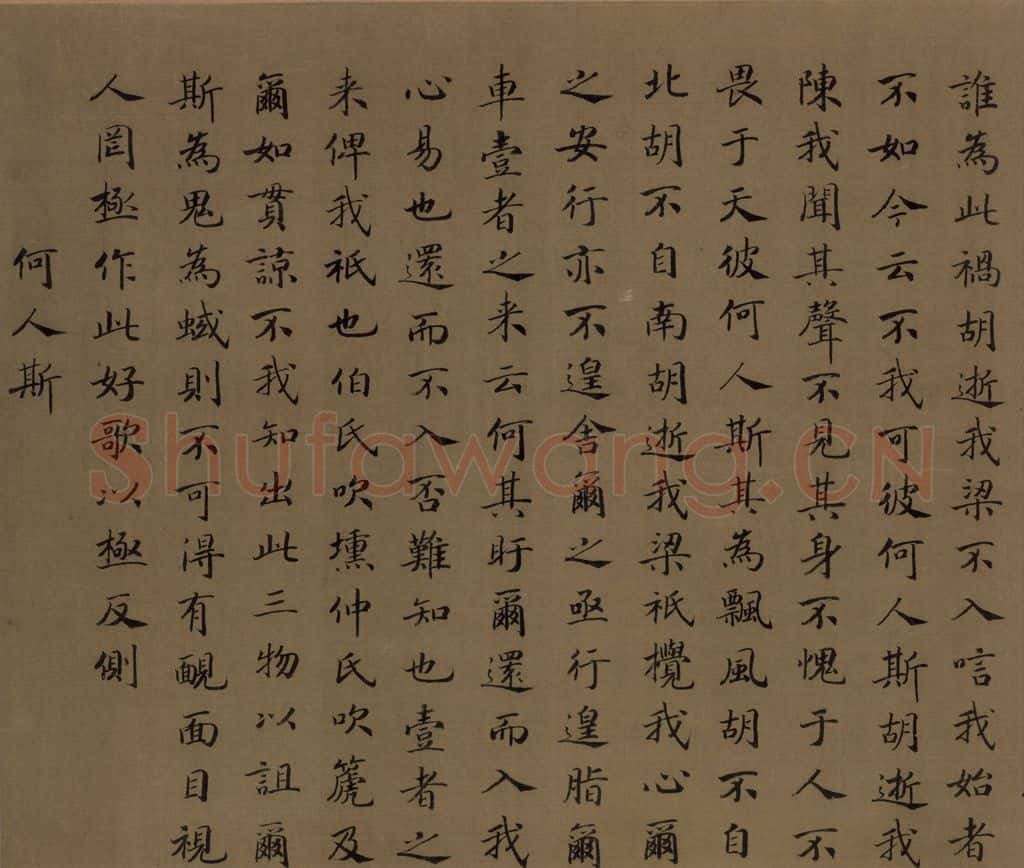 誰為此禍胡逝我梁不入唁我始者
不如今云不我可彼何人斯胡逝我
陳我聞其聲不見其身不愧于人不
畏于天彼何人斯其為飄風胡不自
北胡不自南胡逝我梁祇攪我心爾
之安行亦不遑舍爾之亟行遑脂爾
車壹者之来云何其盱爾還而入我
心易也還而不入否難知也壹者之
来俾我祇也伯氏吹壎仲氏吹篪及
爾如貫諒不我知出此三物以詛爾
斯為鬼為蜮則不可得有靦面目視
人罔極作此好歌以極反側
何人斯
Shufawang.CN